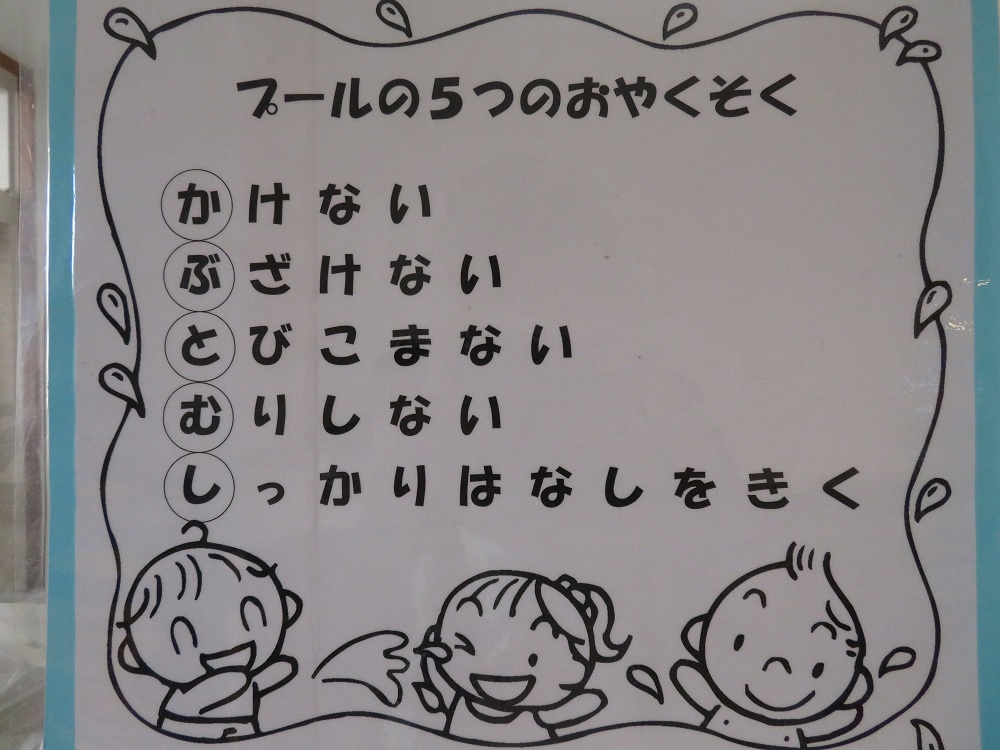 プールの5つのおやくそく
かけない
ぶざけない
とびこまない
むりしない
しっかりはなしをきく